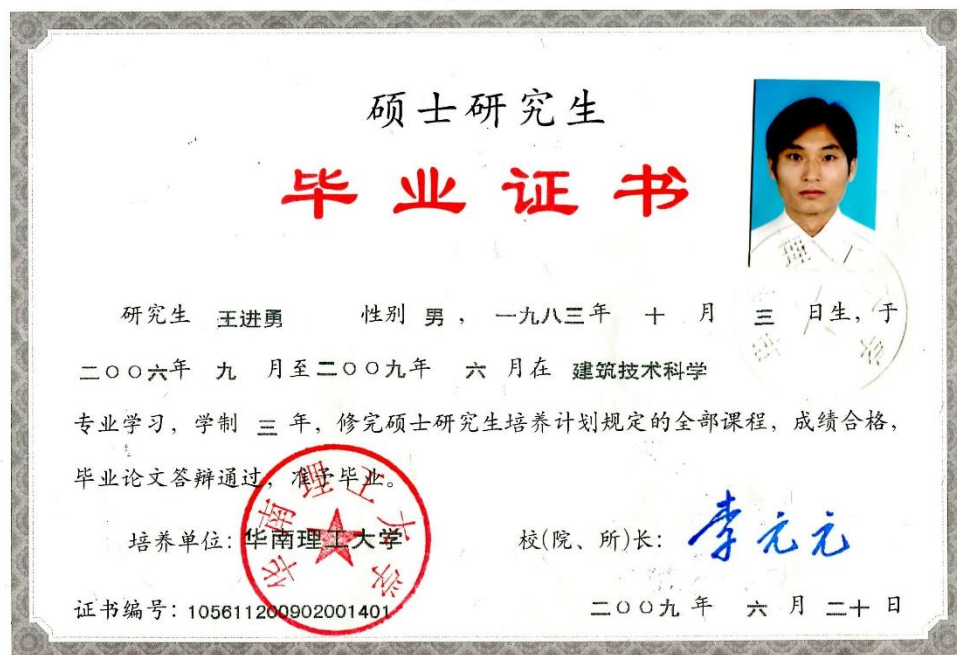 硕士研究生
毕业证书
研究生 王进勇 性别 男 ， 一九八三年 十 月 三 日生，于
二○○六年 九 月至二○○九年 六 月在 建筑技术科学
专业学习，学制 三 年，修完硕士研究生培养计划规定的全部课程，成绩合格，
毕业论文答辩通过，准予毕业。
华南理工大学
培养单位：华南理工大学 校(院、所)长：李元元
证书编号：105611200902001401 二○○九 年 六 月 二十 日